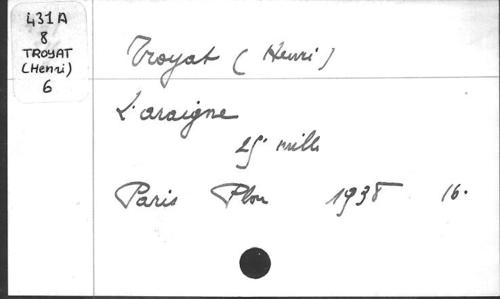 431A
8
TROYAT
(Henri)
6
Troyat (Henri)
L'araigne
25e mille
Paris Plon 1938 16.